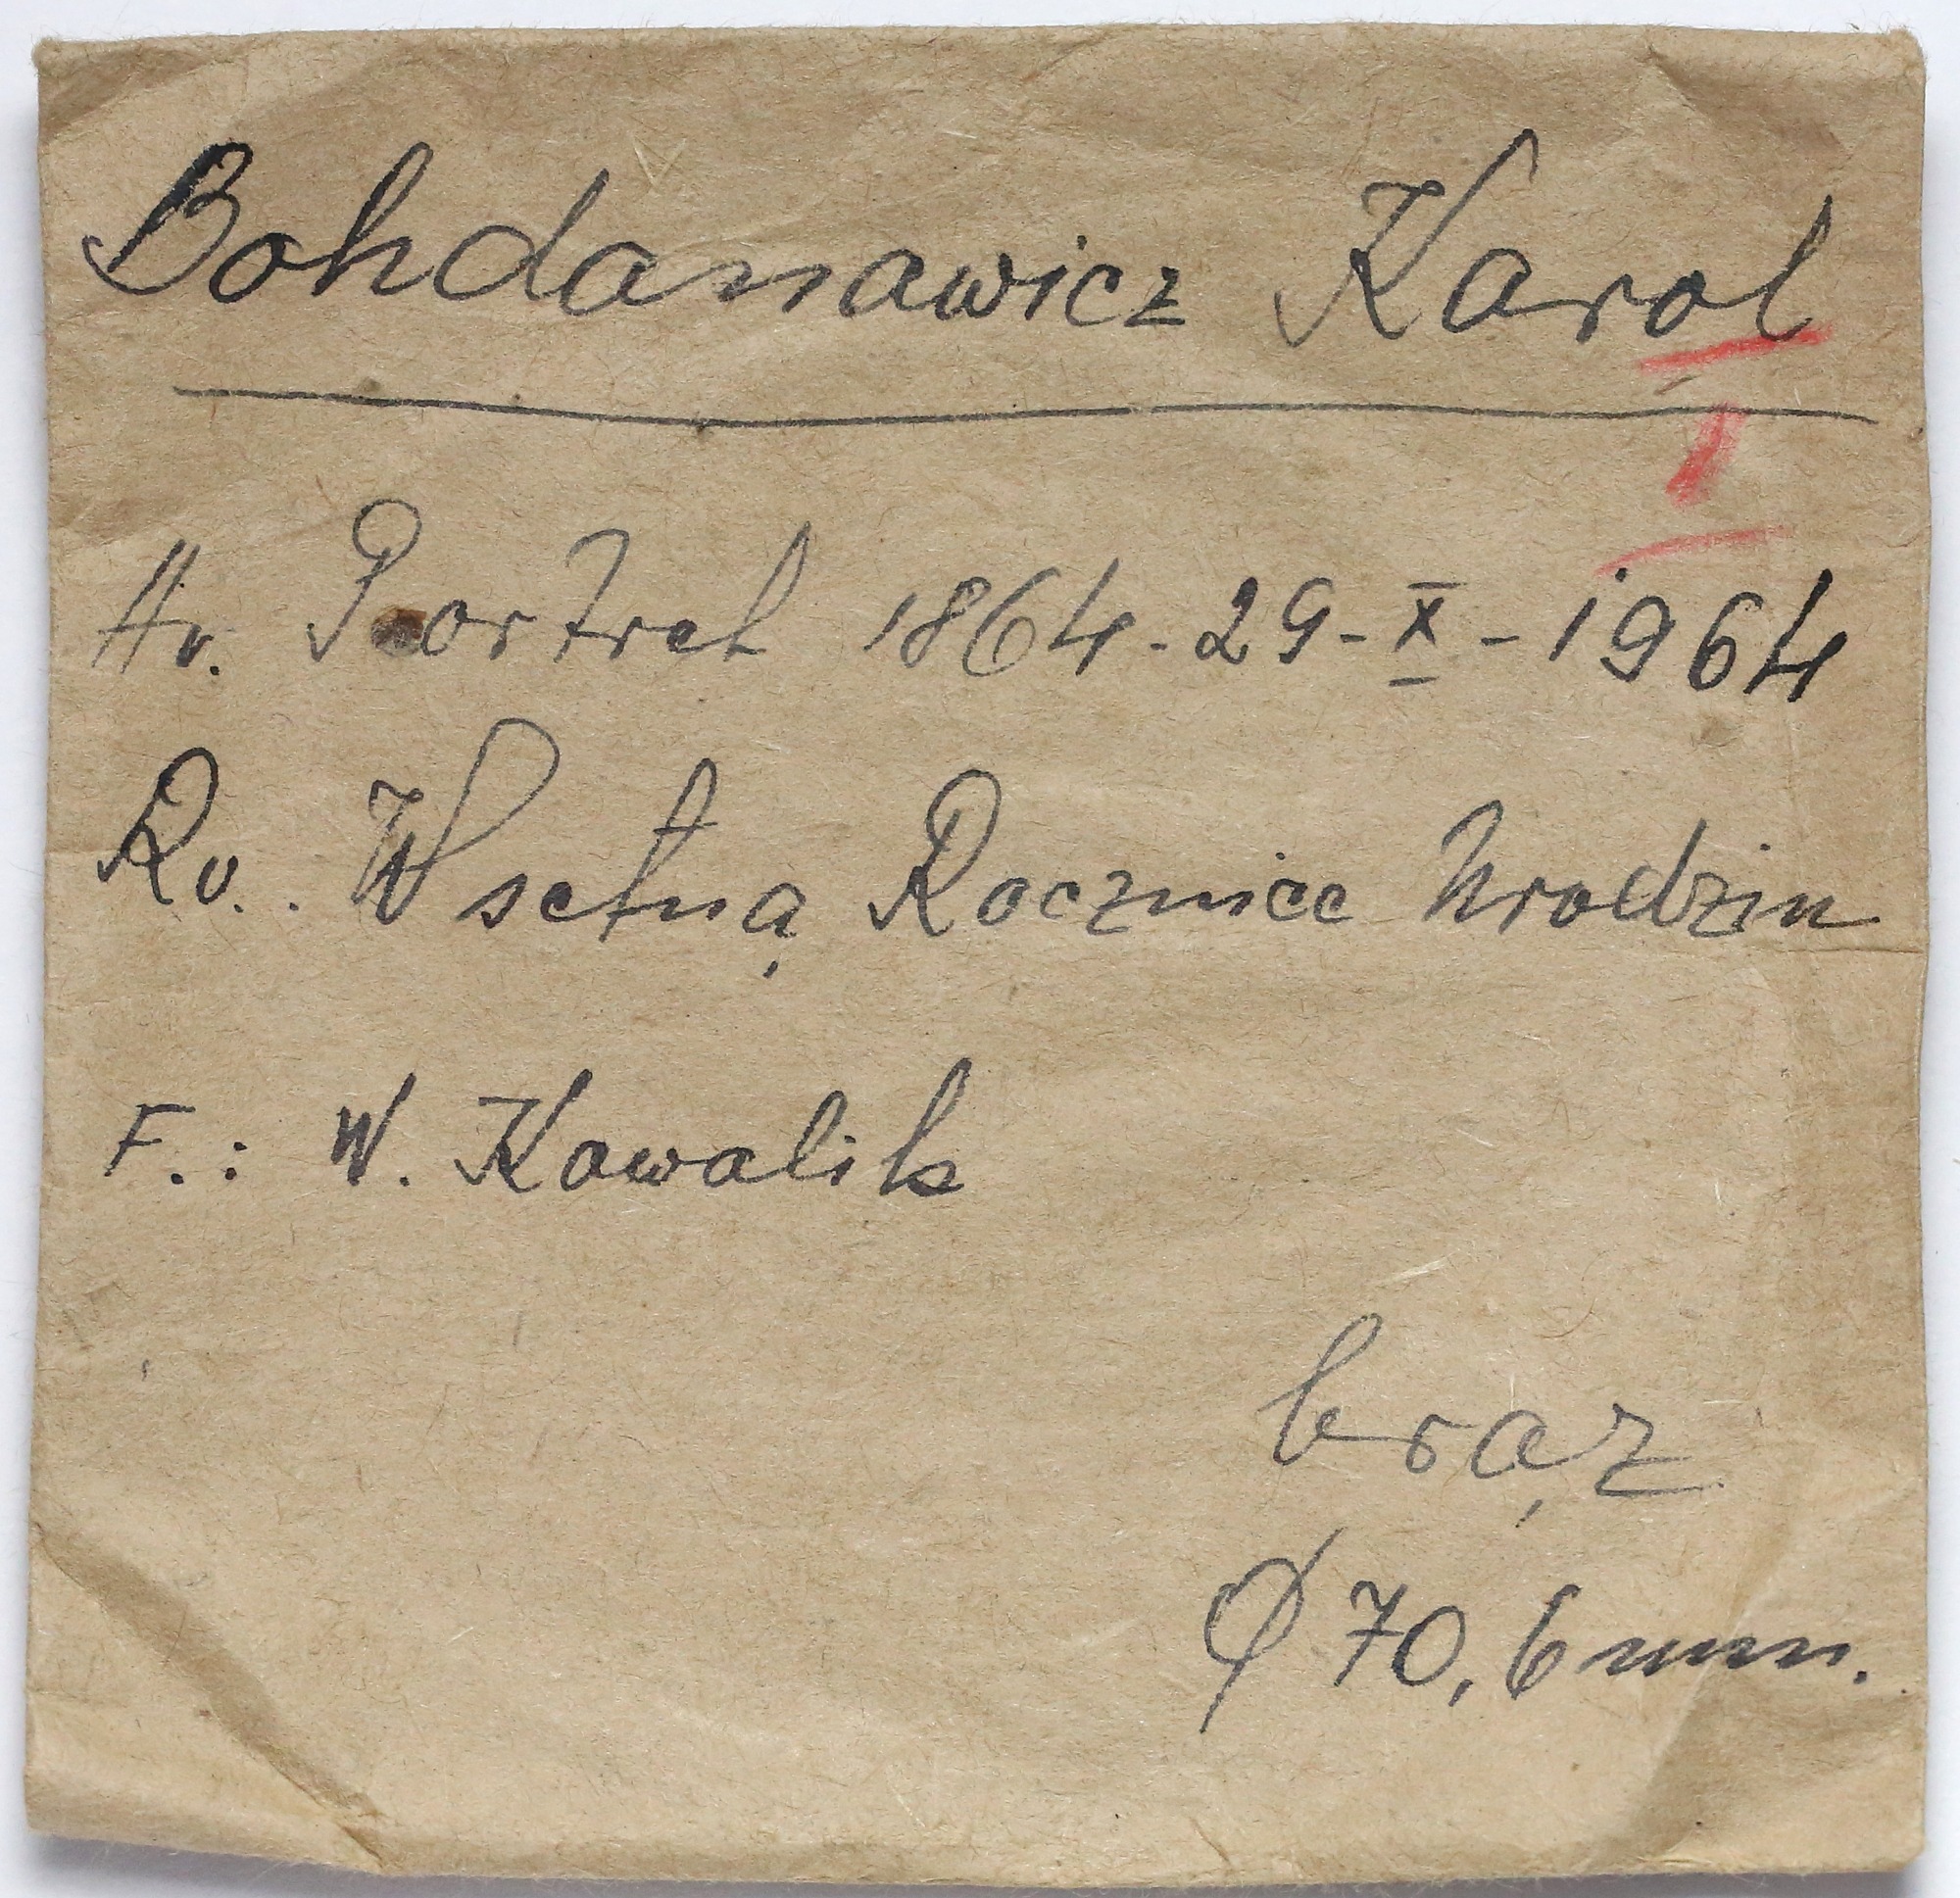 Bohdanowicz Karol
I
Av. Portret 1864-29-X-1964
Rv.. W setną Rocznicę Urodzin
F.: W. Kowalik
brąz
Ø 70,6 mm.